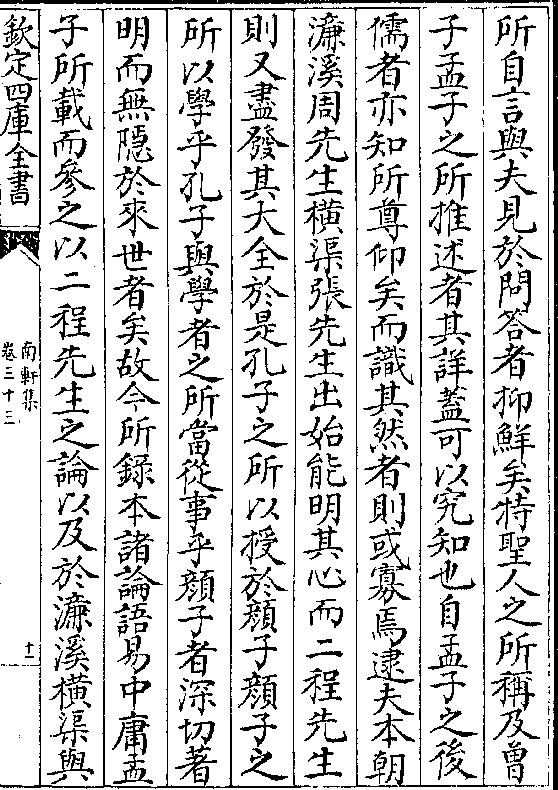 所自言與夫見於問答者抑鮮矣特聖人之所稱及曾
子孟子之所推述者其詳蓋可以究知也自孟子之後
儒者亦知所尊仰矣而識其然者則或寡焉逮夫本朝
濂溪周先生橫渠張先生出始能明其心而二程先生
則又盡發其大全於是孔子之所以授於顔子顔子之
所以學乎孔子與學者之所當從事乎顔子者深切著
明而無隠於來世者矣故今所錄本諸論語易中庸孟
子所載而參之以二程先生之論以及於濂溪橫渠與
欽定四庫全書
南軒集
卷三十三
十一